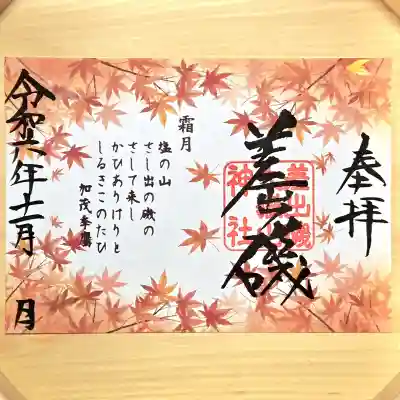 奉拝
差出磯
差出磯
神社
霜月
塩の山
さし出の磯の
さして来し
かひありけりと
しるきこのたひ
加茂季鷹
令和六年十一月　月